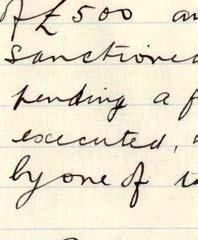 of £500 an
sanctioned
pending a f
executed,
by one of